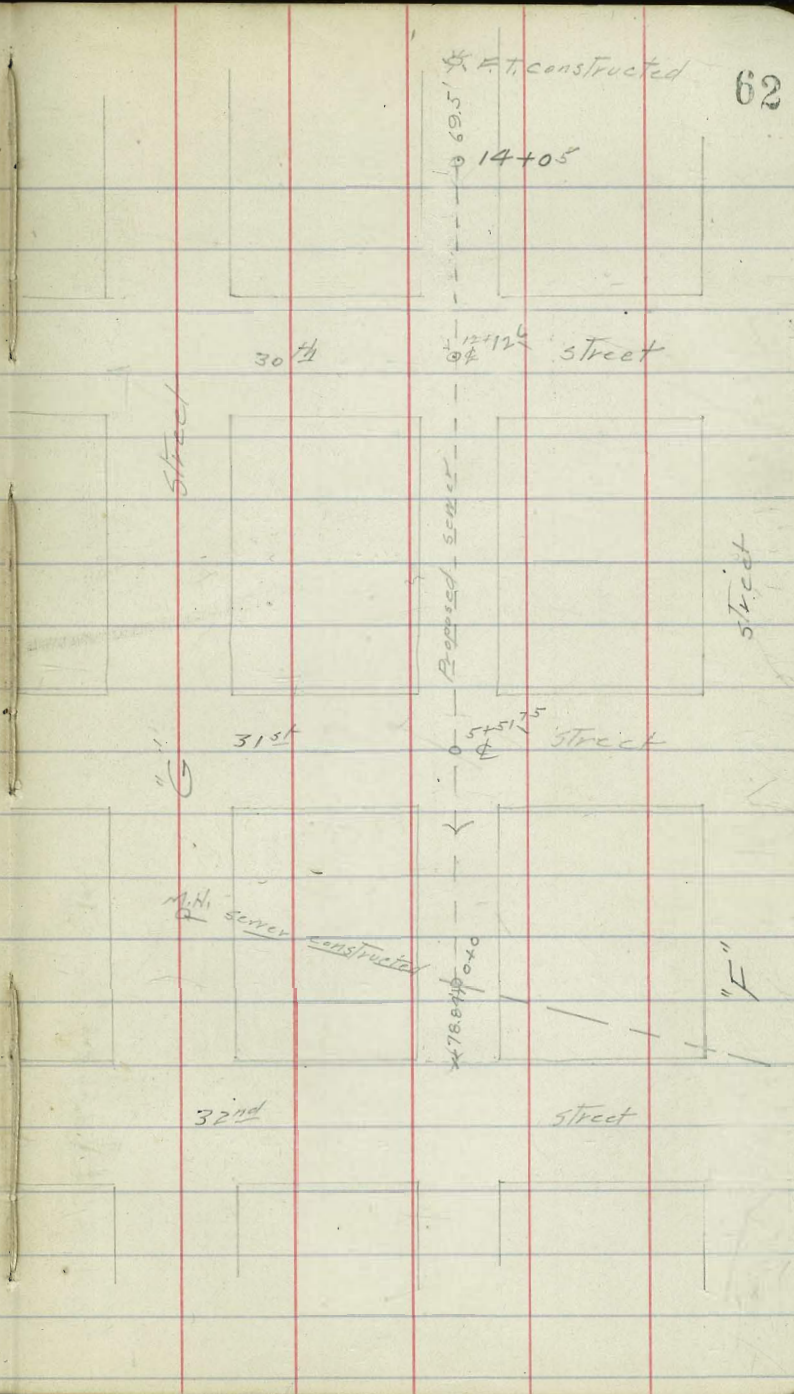 62
F.T. constructed
69.5'
14+05
30th 12+12⁶ ℄ street
Street
Proposed sewer
street
31st 5+51⁷⁵ ℄ street
"G"
M.H. sewer constructed
0+0
78.84
"F"
32nd street